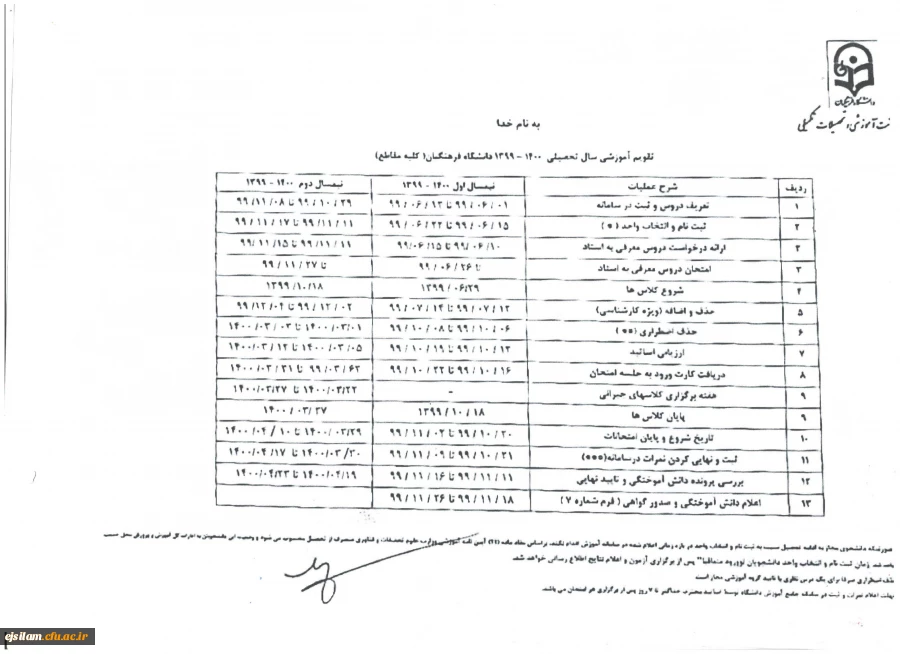 دانشگاه فرهنگیان
به نام خدا
تقویم آموزشی سال تحصیلی ۱۴۰۰ - ۱۳۹۹ دانشگاه فرهنگیان( کلیه مقاطع)
ردیف شرح عملیات نیمسال اول ۱۴۰۰ - ۱۳۹۹ نیمسال دوم ۱۴۰۰ - ۱۳۹۹
۱ تعریف دروس و ثبت در سامانه ۹۹/۰۶/۰۱ تا ۹۹/۰۶/۱۲ ۹۹/۱۰/۲۹ تا ۹۹/۱۱/۰۸
۲ ثبت نام و انتخاب واحد (*) ۹۹/۰۶/۱۵ تا ۹۹/۰۶/۲۲ ۹۹/۱۱/۱۱ تا ۹۹/۱۱/۱۷
۳ ارائه درخواست دروس معرفی به استاد ۹۹/۰۶/۱۰ تا ۹۹/۰۶/۱۵ ۹۹/۱۱/۱۱ تا ۹۹/۱۱/۱۵
۳ امتحان دروس معرفی به استاد تا ۹۹/۰۶/۲۶ تا ۹۹/۱۱/۲۷
۴ شروع کلاس ها ۱۳۹۹/۰۶/۲۹ ۱۳۹۹/۱۰/۱۸
۵ حذف و اضافه (ویژه کارشناسی) ۹۹/۰۷/۱۲ تا ۹۹/۰۷/۱۴ ۹۹/۱۲/۰۲ تا ۹۹/۱۲/۰۴
۶ حذف اضطراری (**) ۹۹/۱۰/۰۶ تا ۹۹/۱۰/۰۸ ۱۴۰۰/۰۳/۰۱ تا ۱۴۰۰/۰۳/۰۳
۷ ارزیابی اساتید ۹۹/۱۰/۱۳ تا ۹۹/۱۰/۱۹ ۱۴۰۰/۰۳/۰۵ تا ۱۴۰۰/۰۳/۱۲
۸ دریافت کارت ورود به جلسه امتحان ۹۹/۱۰/۱۶ تا ۹۹/۱۰/۲۲ تا ۱۴۰۰/۰۳/۳۱
۹ هفته برگزاری کلاسهای جبرانی - ۱۴۰۰/۰۳/۲۲ تا ۱۴۰۰/۰۳/۲۷
۹ پایان کلاس ها ۱۳۹۹/۱۰/۱۸ ۱۴۰۰/۰۳/۲۷
۱۰ تاریخ شروع و پایان امتحانات ۹۹/۱۰/۲۰ تا ۹۹/۱۱/۰۲ ۱۴۰۰/۰۳/۲۹ تا ۱۴۰۰/۰۴/۱۰
۱۱ ثبت و نهایی کردن نمرات درسامانه(***) ۹۹/۱۰/۲۱ تا ۹۹/۱۱/۰۹ ۱۴۰۰/۰۳/۳۰ تا ۱۴۰۰/۰۴/۱۷
۱۲ بررسی پرونده دانش آموختگی و تایید نهایی ۹۹/۱۱/۱۱ تا ۹۹/۱۱/۱۶ ۱۴۰۰/۰۴/۱۹ تا ۱۴۰۰/۰۴/۲۳
۱۳ اعلام دانش آموختگی و صدور گواهی ( فرم شماره ۷) ۹۹/۱۱/۱۸ تا ۹۹/۱۱/۲۶
زمان ثبت نام و انتخاب واحد دانشجویان نوورود متعاقبا" پس از برگزاری آزمون و اعلام نتایج اطلاع رسانی خواهد شد.
اضطراری صرفا برای یک درس نظری با تایید گروه آموزشی مجاز است
اعلام نمرات و ثبت در سامانه جامع آموزش دانشگاه توسط اساتید محترم حداکثر تا ۷ روز پس از برگزاری هر امتحان می باشد.
ejsilam.cfu.ac.ir